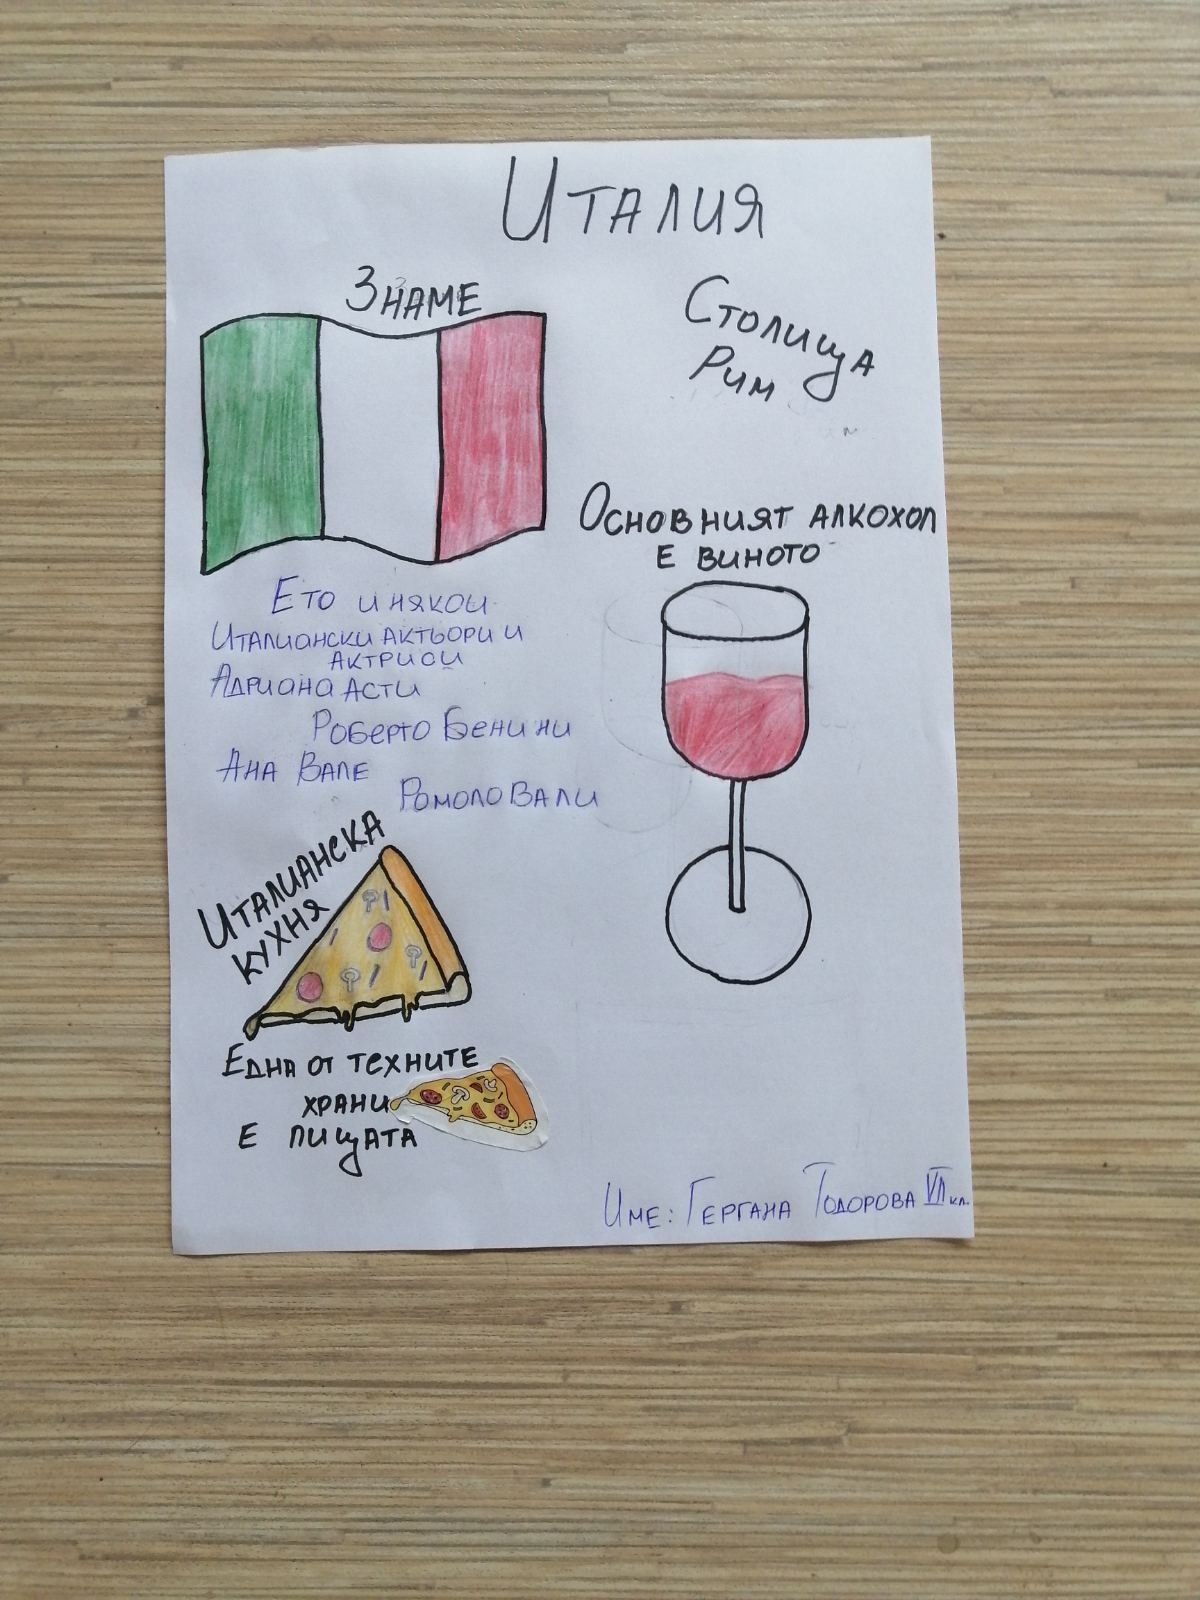 Италия
Знаме
Столица
Рим
Основният алкохол
е виното
Ето и някои
Италиански актьори и
актриси
Адриана Асти
Роберто Бенини
Ана Вале
Ромоло Вали
Италианска
кухня
Една от техните
храни
е пицата
Име: Гергана Тодорова VII кл.